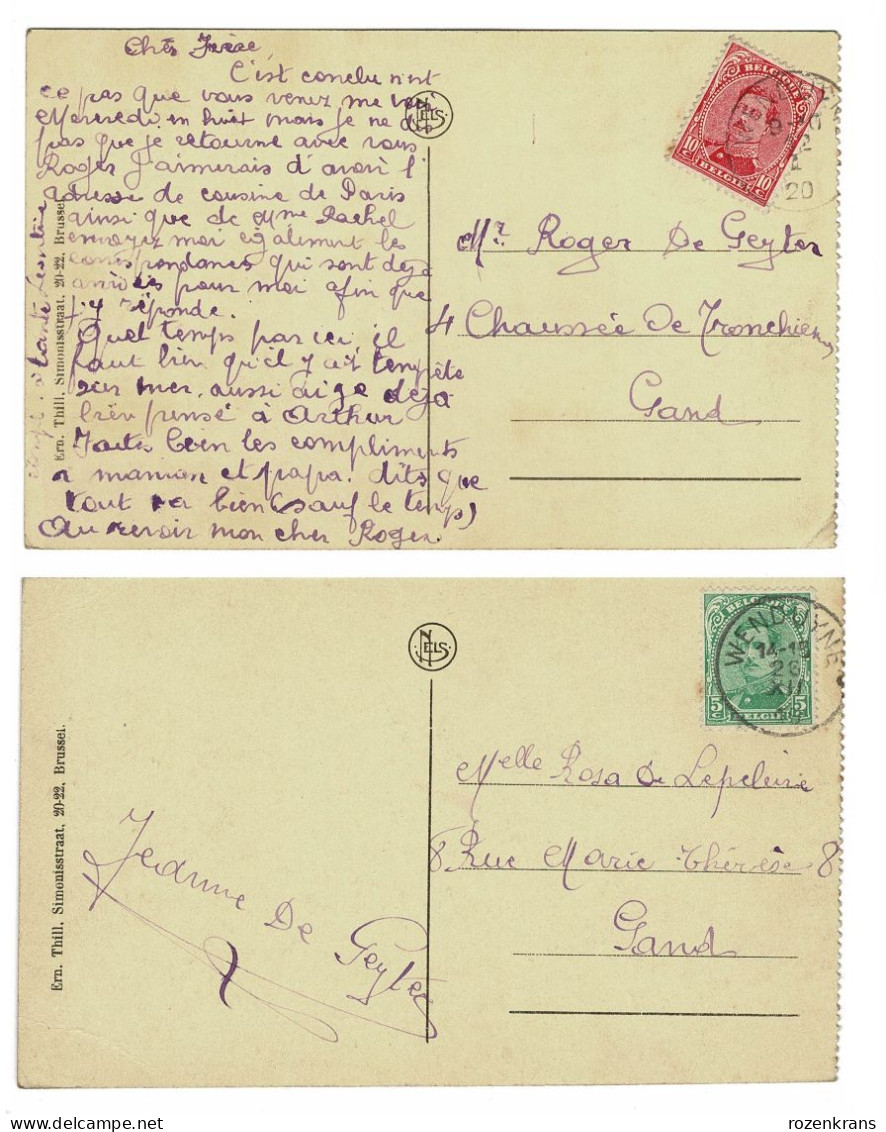 Cher Frère,
C'est conclu n'est
ce pas que vous venez me voir
Mercredi en huit mais je ne dis
pas que je retourne avec vous
Roger J'aimerais d'avoir l'
adresse de cousine de Paris
ainsi que de Mme Rachel
envoyez moi également les
correspondances qui sont déjà
arrivées pour moi afin que
j'y réponde.
Quel temps par ici, il
faut bien qu'il y ait tempête
sur mer, aussi ai ge déjà
bien pensé à Arthur
Faites bien les compliments
a maman et papa. dits que
tout va bien (sauf le temps)
Au revoir mon cher Roger.
à tante Léontine
Ern. Thill, Simonisstraat, 20-22, Brussel.
NELS
BELGIQUE
10 C
BELGIE
10 C
20
Mr Roger De Geyter
4 Chaussée De Tronchiennes
Gand
NELS
BELGIQUE
5 C
BELGIE
5 C
WENDUYNE
14-15
XII
Ern. Thill, Simonisstraat, 20-22, Brussel.
Jeanne De Geyter
Melle Rosa De Lepeleire
8 Rue Marie Thérèse 8
Gand
rozenkrans